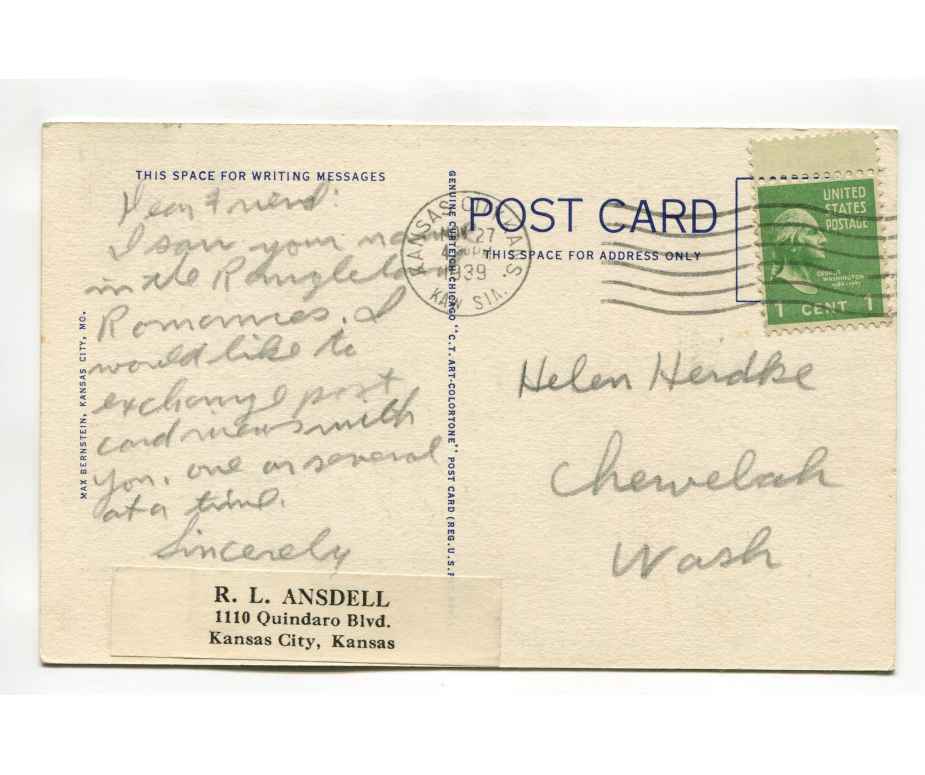 THIS SPACE FOR WRITING MESSAGES
Dear Friend:
I saw your name
in the Rangeland
Romances. I
would like to
exchange post
card views with
you, one or several
at a time.
Sincerely
R. L. ANSDELL
1110 Quindaro Blvd.
Kansas City, Kansas
MAX BERNSTEIN, KANSAS CITY, MO.
GENUINE CURTEICH-CHICAGO "C.T. ART-COLORTONE" POST CARD (REG. U.S. P
KANSAS CITY, KANS.
27
1939
KAW STA.
POST CARD
THIS SPACE FOR ADDRESS ONLY
UNITED
STATES
POSTAGE
GEORGE
WASHINGTON
1 CENT 1
Helen Heidke
Chewelah
Wash